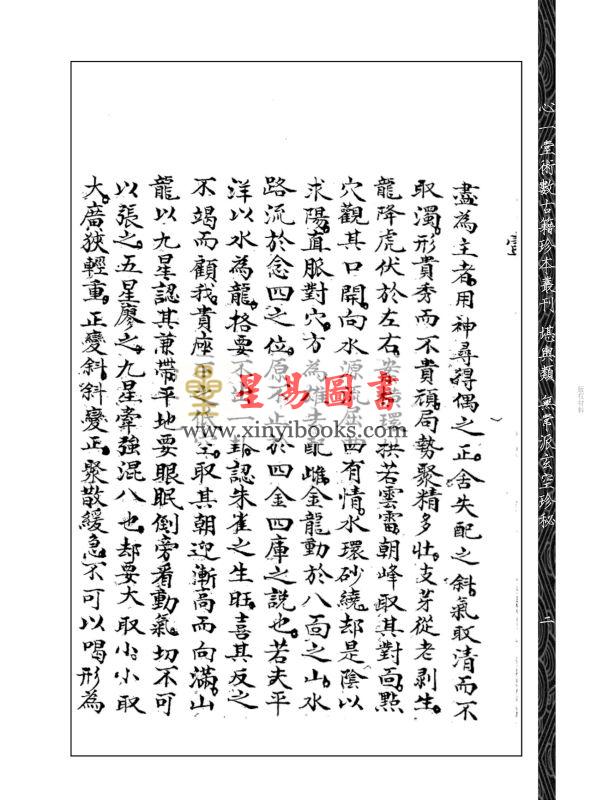 心一堂術數古籍珍本叢刊 堪輿類 無常派玄空珍秘
二
版权材料
盡為主者用神尋得偶之正舍失配之斜氣取清而不
取濁形貴秀而不貴頑局勢聚精多壯支芽從老剥生
龍降虎伏於左右 拱若雲雷朝峰取其對面點
穴觀其口開向水源 有情水環砂繞却是陰以
求陽直脈對穴方為雄 配雌金龍動於八面之山水
路流於念四之位原不止於四金四庫之説也若夫平
洋以水為龍格要不 一卦認朱雀之生旺喜其反之
不竭而顧我貴座 空取其朝迎漸高而向滿山
龍以九星認其兼帶平地要眼眠倒旁看動氣切不可
以張之五星廖之九星牽強混八也却要大取小小取
大廣狹輕重正變斜斜變正聚散緩急不可以喝形為
星易圖書
www.xinyibooks.com